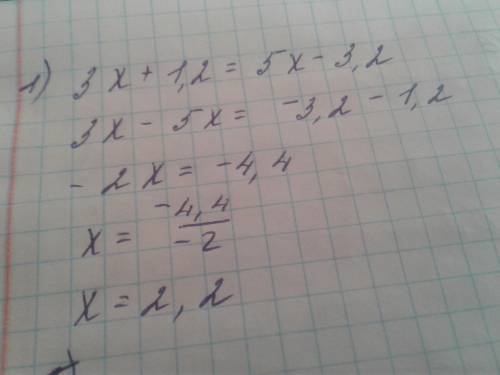 1) 3x + 1,2 = 5x - 3,2
3x - 5x = -3,2 - 1,2
- 2x = -4,4
x = -4,4 / -2
x = 2,2